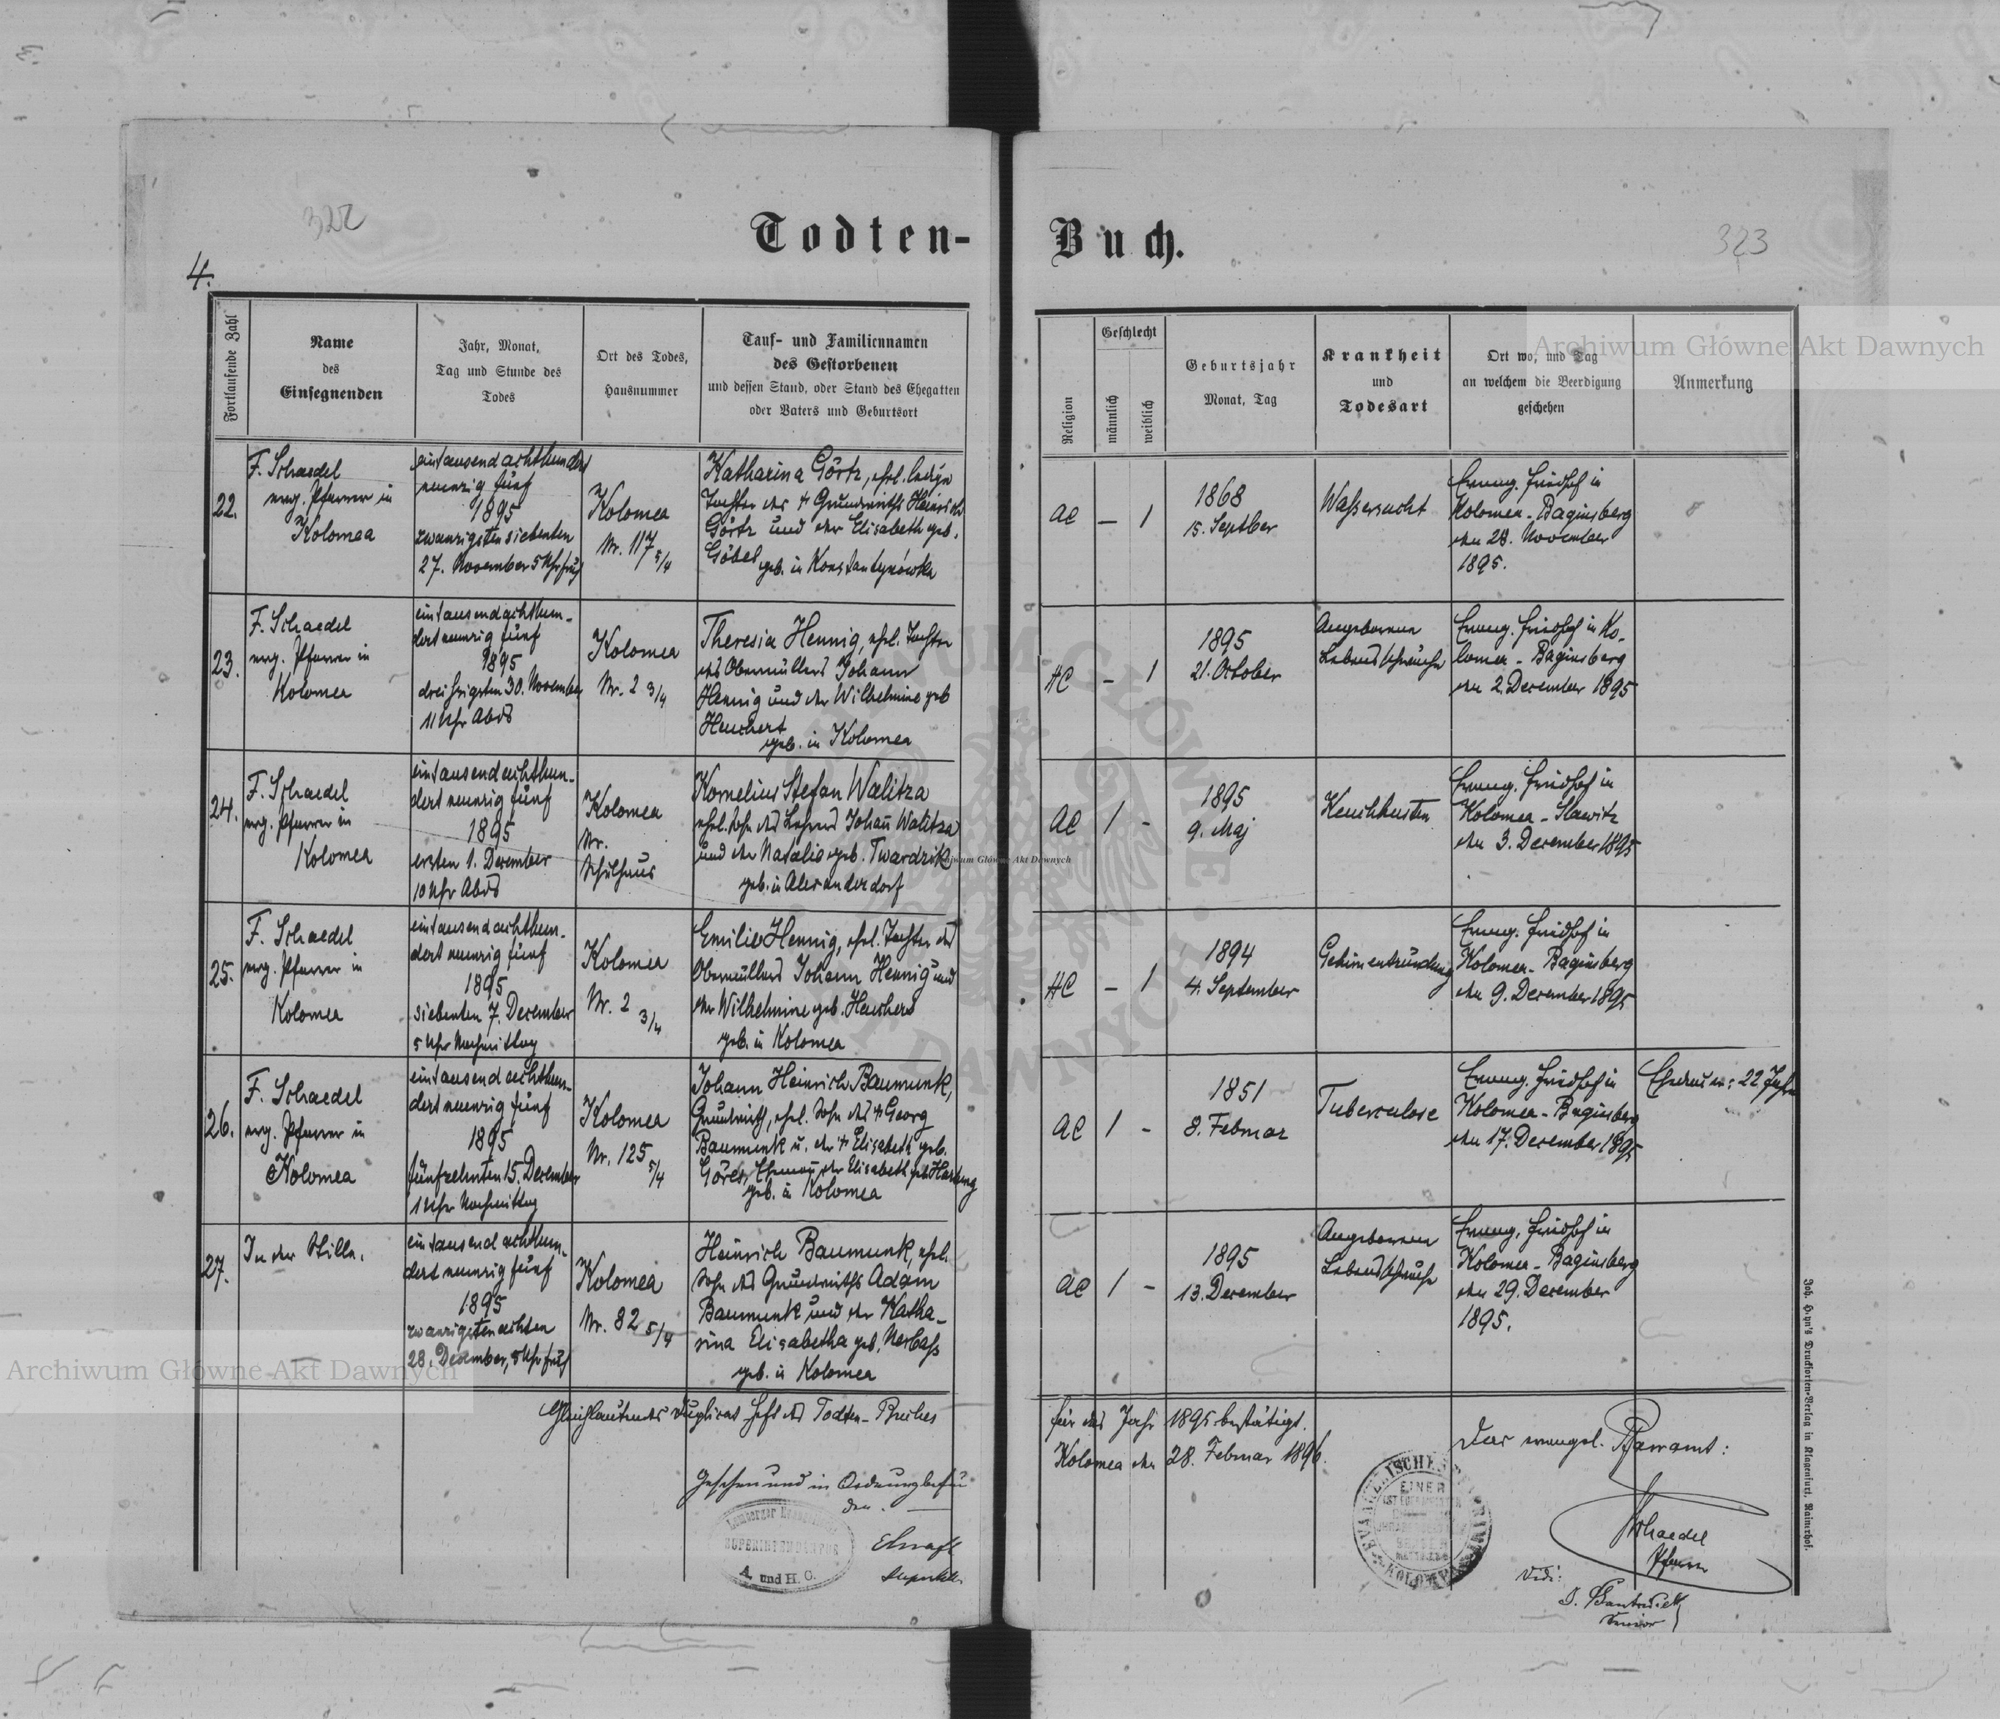 322
323
Todten-Buch.
4.
Fortlaufende Zahl
Name
des
Einsegnenden
Jahr, Monat,
Tag und Stunde des
Todes
Ort des Todes,
Hausnummer
Tauf- und Familiennamen
des Gestorbenen
und dessen Stand, oder Stand des Ehegatten
oder Vaters und Geburtsort
Religion
Geschlecht
männlich
weiblich
Geburtsjahr
Monat, Tag
Krankheit
und
Todesart
Ort wo, und Tag
an welchem die Beerdigung
geschehen
Anmerkung
22.
F. Schaedel
evg. Pfarrer in
Kolomea
eintausendachthundert
neunzig fünf
1895
zwanzigsten siebenten
27. November 5 Uhr früh
Kolomea
Nr. 117 5/4
Katharina Görtz, ehel. ledige
Tochter des † Grundwirths Heinrich
Görtz und der Elisabeth geb.
Göbel geb. in Konstantynówka
AC
–
1
1868
15. Septber
Wassersucht
Evang. Friedhof in
Kolomea-Baginsberg
den 28. November
1895.
23.
F. Schaedel
evg. Pfarrer in
Kolomea
eintausendachthun-
dert neunzig fünf
1895
dreißigsten 30. November
11 Uhr Abds
Kolomea
Nr. 2 3/4
Theresia Hennig, ehel. Tochter
des Obermüllers Johann
Hennig und der Wilhelmine geb
Heuchert
geb. in Kolomea
HC
–
1
1895
21. October
Angeborene
Lebensschwäche
Evang. Friedhof in Ko-
lomea-Baginsberg
den 2. December 1895
24.
F. Schaedel
evg. Pfarrer in
Kolomea
eintausendachthun-
dert neunzig fünf
1895
ersten 1. December
10 Uhr Abds
Kolomea
Nr.
Schulhaus
Kornelius Stefan Walitza
ehel. Sohn des Lehrers Johann Walitza
und der Natalie geb. Twardzik
geb. in Alexanderdorf
AC
1
-
1895
9. Maj
Keuchhusten
Evang. Friedhof in
Kolomea-Slawitz
den 3. December 1895
25.
F. Schaedel
evg. Pfarrer in
Kolomea
eintausendachthun-
dert neunzig fünf
1895
siebenten 7. December
5 Uhr Nachmittag
Kolomea
Nr. 2 3/4
Emilie Hennig, ehel. Tochter des
Obermüllers Johann Hennig und
der Wilhelmine geb. Heuchert
geb. in Kolomea
HC
–
1
1894
4. September
Gehirnentzündung
Evang. Friedhof in
Kolomea-Baginsberg
den 9. December 1895
26.
F. Schaedel
evg. Pfarrer in
Kolomea
eintausendachthun-
dert neunzig fünf
1895
fünfzehnten 15. December
1 Uhr Nachmittag
Kolomea
Nr. 125 5/4
Johann Heinrich Baumunk,
Grundwirth, ehel. Sohn des † Georg
Baumunk u. der † Elisabeth geb.
Göres, Ehemann der Elisabeth geb. Hartung
geb. in Kolomea
AC
1
-
1851
8. Februar
Tuberculose
Evang. Friedhof in
Kolomea-Baginsberg
den 17. December 1895
Ehedauer: 22 Jahre
27.
In der Stille.
eintausend achthun-
dert neunzig fünf
1895
zwanzigsten achten
28. December, 5 Uhr früh
Kolomea
Nr. 82 5/4
Heinrich Baumunk, ehel.
Sohn des Grundwirths Adam
Baumunk und der Katha-
rina Elisabetha geb. Nerbass
geb. in Kolomea
AC
1
-
1895
13. December
Angeborene
Lebensschwäche
Evang. Friedhof in
Kolomea-Baginsberg
den 29. December
1895.
Gleichlautendes Duplicat Heft des Todten-Buches für das Jahr 1895 bestätigt.
Kolomea den 28. Februar 1896.
Das evangel. Pfarramt:
Schaedel
Pfarrer
Gesehen und in Ordnung befun
den.
Lemberger Evangelische
SUPERINTENDENTUR
A. und H. C.
KOLOMEA
Vidi:
Senior
Joh. Heyn's Drucksorten-Verlag in Klagenfurt, Rainerhof.
Archiwum Główne Akt Dawnych
Archiwum Główne Akt Dawnych
Archiwum Główne Akt Dawnych